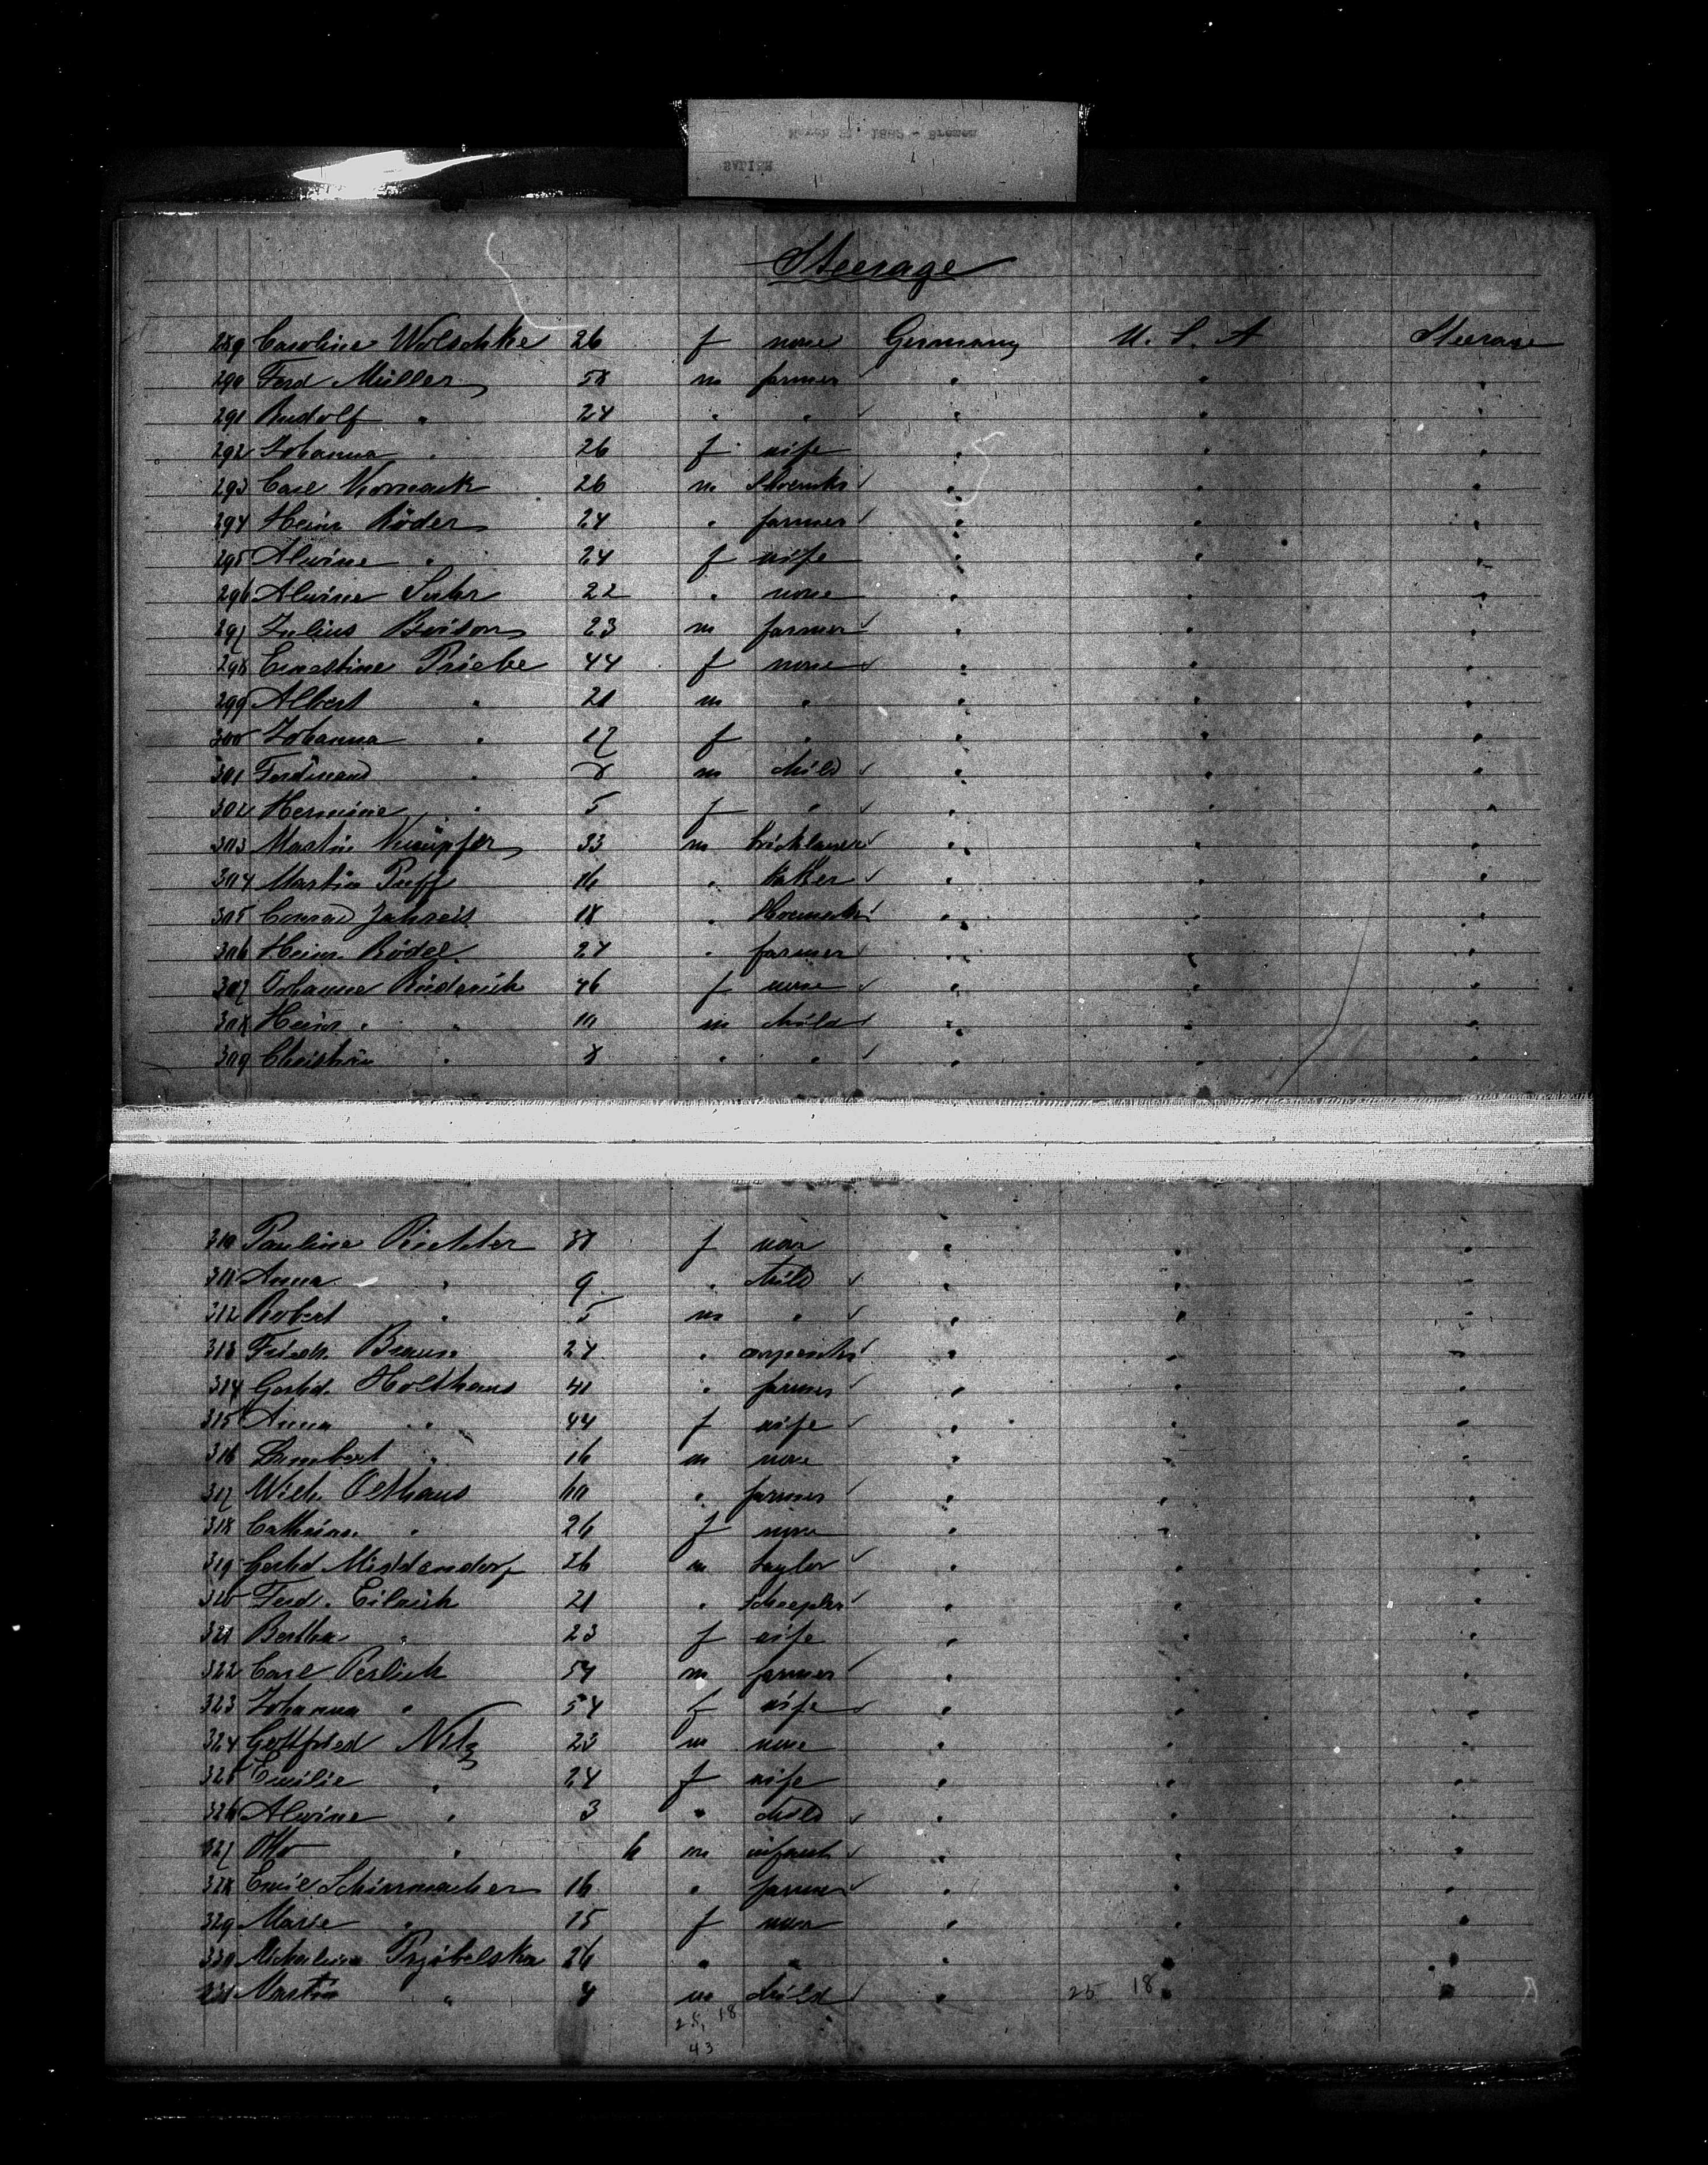 Steerage
289 Caroline Wolschke 26 f none Germany U. S. A Steerage
290 Ferd Müller 58 m farmer " " "
291 Rudolf " 24 " " " " "
292 Johanna " 26 f wife " " "
293 Carl Kornack 26 m " " "
294 Heinr Röder 24 " farmer " " "
295 Alwine " 24 f wife " " "
296 Alwine Suhr 22 " none " " "
297 Julius 23 m farmer " " "
298 Ernestine Priebe 44 f none " " "
299 Albert " 21 m " " " "
300 Johanna " 17 f " " " "
301 Ferdinand " 8 m child " " "
302 Hermine " 5 f " " " "
303 Martin 33 m bricklayer " " "
304 Martin Puff 16 " baker " " "
305 Conrad Jahreis 18 " " " "
306 Heinr Rödel 24 " farmer " " "
307 Johanne 46 f none " " "
308 Heinr. " 10 m child " " "
309 Christian " 8 " " " " "
310 Pauline Richter f none " " "
311 Anna " 9 " child " " "
312 Robert " 5 m " " " "
313 Friedr. Braun 24 " carpenter " " "
314 Gerhd. Holthaus 41 " farmer " " "
315 Anna " 44 f wife " " "
316 Lambert " 16 m none " " "
317 Wilh. Olthaus 60 " farmer " " "
318 Cathrine " 26 f none " " "
319 Gerhd Middendorf 26 m taylor " " "
320 Ferd. Eilrich 21 " " " "
321 Bertha " 23 f wife " " "
322 Carl Perlich 54 m farmer " " "
323 Johanna " 54 f wife " " "
324 Gottfried Nitz 23 m none " " "
325 Emilie " 24 f wife " " "
326 Alwine " 3 " child " " "
327 Otto " 6 m infant " " "
328 Emil Schirrmacher 16 " farmer " " "
329 Marie " 15 f none " " "
330 Michalina 26 " " " " "
331 Martin " 4 m child " 25 18 " "
25, 18
43